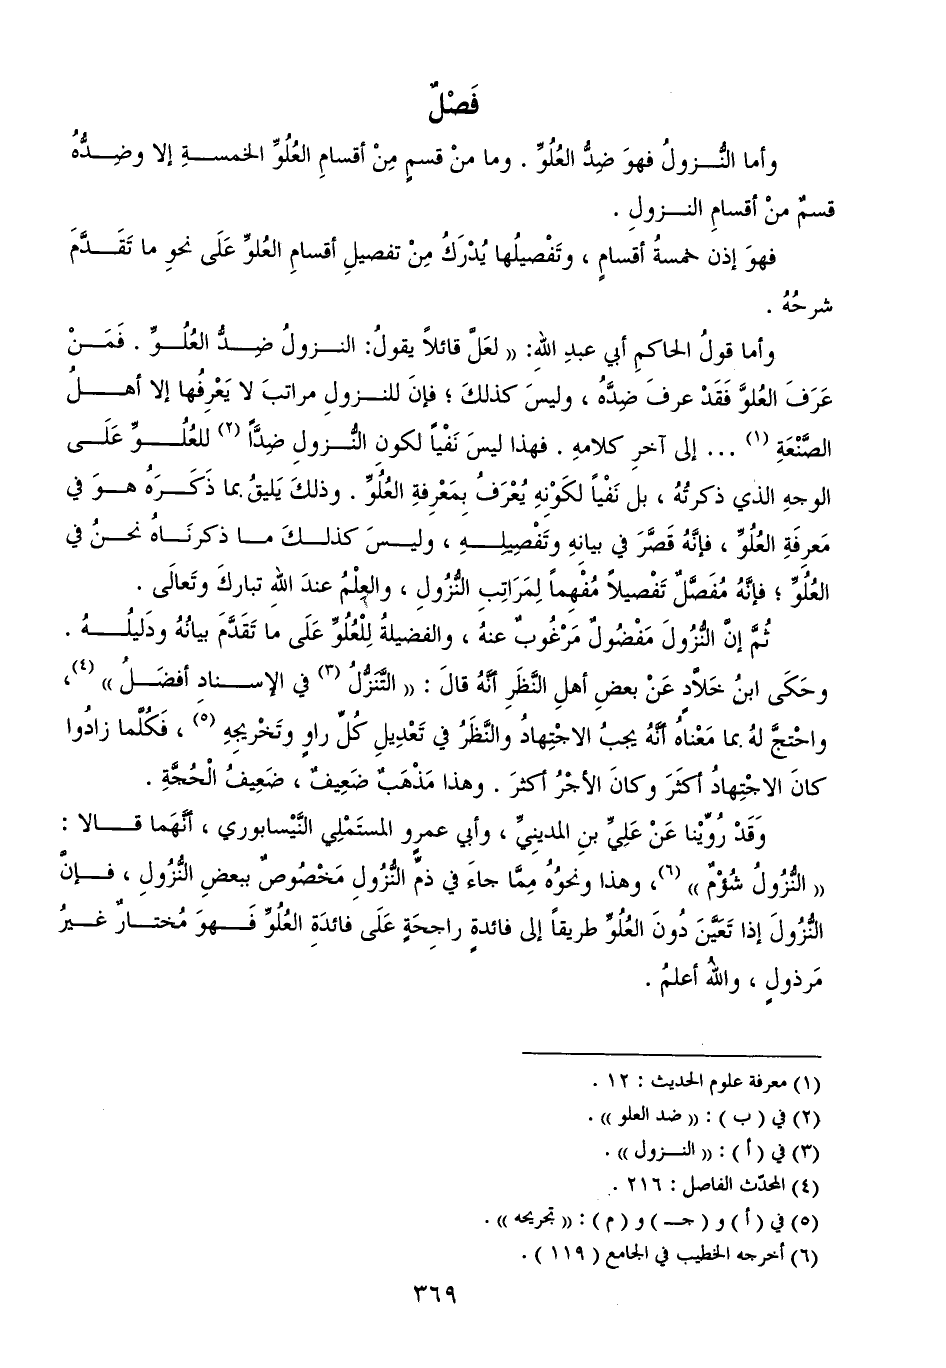 فَصْلٌ
وأما النُّـزولُ فهوَ ضِدُّ العُلُوِّ . وما منْ قسمٍ مِنْ أقسامِ العُلُوِّ الخمسـةِ إلا وضِـدُّهُ
قسمٌ منْ أقسامِ النـزولِ .
فهوَ إذن خمسةُ أقسامٍ ، وتَفْصيلُها يُدْرَكُ مِنْ تفصيلِ أقسامِ العُلوِّ عَلَى نحوِ ما تَقَـدَّمَ
شرحُهُ .
وأما قولُ الحاكمِ أبي عبدِ اللهِ: « لعَلَّ قائلاً يقولُ: النـزولُ ضِـدُّ العُلُـوِّ . فَمَـنْ
عَرَفَ العُلوَّ فَقَدْ عرفَ ضِدَّهُ ، وليسَ كذلكَ ؛ فإنَ للنـزولِ مراتبَ لا يَعْرِفُها إلا أهـلُ
الصَّنْعَةِ (١) ... إلى آخرِ كلامهِ . فهذا ليسَ نَفْياً لكون النُّـزولِ ضِدَّاً (٢) للعُلُـوِّ عَلَـى
الوجهِ الذي ذكرتُهُ ، بل نَفْياً لكَوْنِهِ يُعْرَفُ بمَعْرفةِ العُلُوِّ . وذلكَ يَليقُ بما ذَكَـرَهُ هـوَ في
مَعرفَةِ العُلُوِّ ، فإنَّهُ قصَّرَ في بيانهِ وتَفْصيلِـهِ ، وليـسَ كذلـكَ مـا ذكرنَـاهُ نحـنُ في
العُلُوِّ ؛ فإنَّهُ مُفَصَّلٌ تَفْصيلاً مُفْهِماً لِمَرَاتِبِ النُّزُولِ ، والعِلْمُ عندَ اللهِ تباركَ وتَعالَى .
ثُمَّ إنَّ النُّزُولَ مَفْضُولٌ مَرْغُوبٌ عنهُ ، والفضيلةُ لِلْعُلُوِّ عَلَى ما تَقَدَّمَ بيانُهُ ودَليلُـهُ .
وحَكَى ابنُ خَلاَّدٍ عَنْ بعضِ أهلِ النَّظَرِ أنَّهُ قالَ : « التَّنَزُّلُ (٣) في الإسـنادِ أفضَـلُ » (٤)،
واحْتجَّ لهُ بما مَعْناهُ أنَّهُ يجبُ الاجْتِهادُ والنَّظَرُ في تَعْدِيلِ كُلِّ راوٍ وتَخْريجِهِ (٥) ، فَكُلَّما زادُوا
كانَ الاجْتِهادُ أكثَرَ وكانَ الأجْرُ أكثرَ . وهذا مَذْهَبٌ ضَعِيفٌ ، ضَعِيفُ الْحُجَّةِ .
وَقَدْ رُوِّيْنا عَنْ عَلِيِّ بنِ المدينيِّ ، وأبي عمرٍو المستَمْلِي النَّيْسابوري ، أنَّهُما قـالا :
« النُّزُولُ شُؤْمٌ » (٦)، وهذا ونحوُهُ مِمَّا جاءَ في ذمِّ النُّزُولِ مَخْصُوصٌ ببعضِ النُّزُولِ ، فـإنَّ
النُّزُولَ إذا تَعَيَّنَ دُونَ العُلُوِّ طريقاً إلى فائدةٍ راجحَةٍ عَلَى فائدَةِ العُلُوِّ فَـهوَ مُختـارٌ غـيرُ
مَرذولٍ ، واللهُ أعلمُ .
(١) معرفة علوم الحديث : ١٢ .
(٢) في ( ب ) : « ضد العلو » .
(٣) في ( أ ) : « النـزول » .
(٤) المحدّث الفاصل : ٢١٦ .
(٥) في ( أ ) و ( جـ ) و ( م ) : « تجريحه » .
(٦) أخرجه الخطيب في الجامع ( ١١٩ ) .
٣٦٩